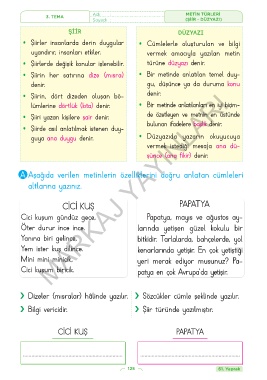 3. TEMA
METİN TÜRLERİ
(ŞİİR - DÜZYAZI)
ŞİİR
• Şiirler insanlarda derin duygular
uyandırır, insanları etkiler.
• Şiirlerde değişik konular işlenebilir.
• Şiirin her satırına dize (mısra)
denir.
• Şiirin, dört dizeden oluşan bö-
lümlerine dörtlük (kıta) denir.
• Şiiri yazan kişilere şair denir.
• Şiirde asıl anlatılmak istenen duy-
guya ana duygu denir.
DÜZYAZI
• Cümlelerle oluşturulan ve bilgi
vermek amacıyla yazılan metin
türüne düzyazı denir.
• Bir metinde anlatılan temel duy-
gu, düşünce ya da duruma konu
denir.
• Bir metinde anlatılanları en iyi biçim-
de özetleyen ve metnin en üstünde
bulunan ifadelere başlık denir.
• Düzyazıda yazarın okuyucuya
vermek istediği mesaja ana dü-
şünce (ana fikir) denir.
A Aşağıda verilen metinlerin özelliklerini doğru anlatan cümleleri
altlarına yazınız.
CİCİ KUŞ
Cici kuşum gündüz gece,
Öter durur ince ince.
Yanına biri gelince,
Yem ister kuş dilince.
Mini mini minicik,
Cici kuşum biricik.
PAPATYA
Papatya, mayıs ve ağustos ay-
larında yetişen güzel kokulu bir
bitkidir. Tarlalarda, bahçelerde, yol
kenarlarında yetişir. En çok yetiştiği
yeri merak ediyor musunuz? Pa-
patya en çok Avrupa'da yetişir.
Dizeler (mısralar) hâlinde yazılır.
Sözcükler cümle şeklinde yazılır.
Bilgi vericidir.
Şiir türünde yazılmıştır.
CİCİ KUŞ
PAPATYA